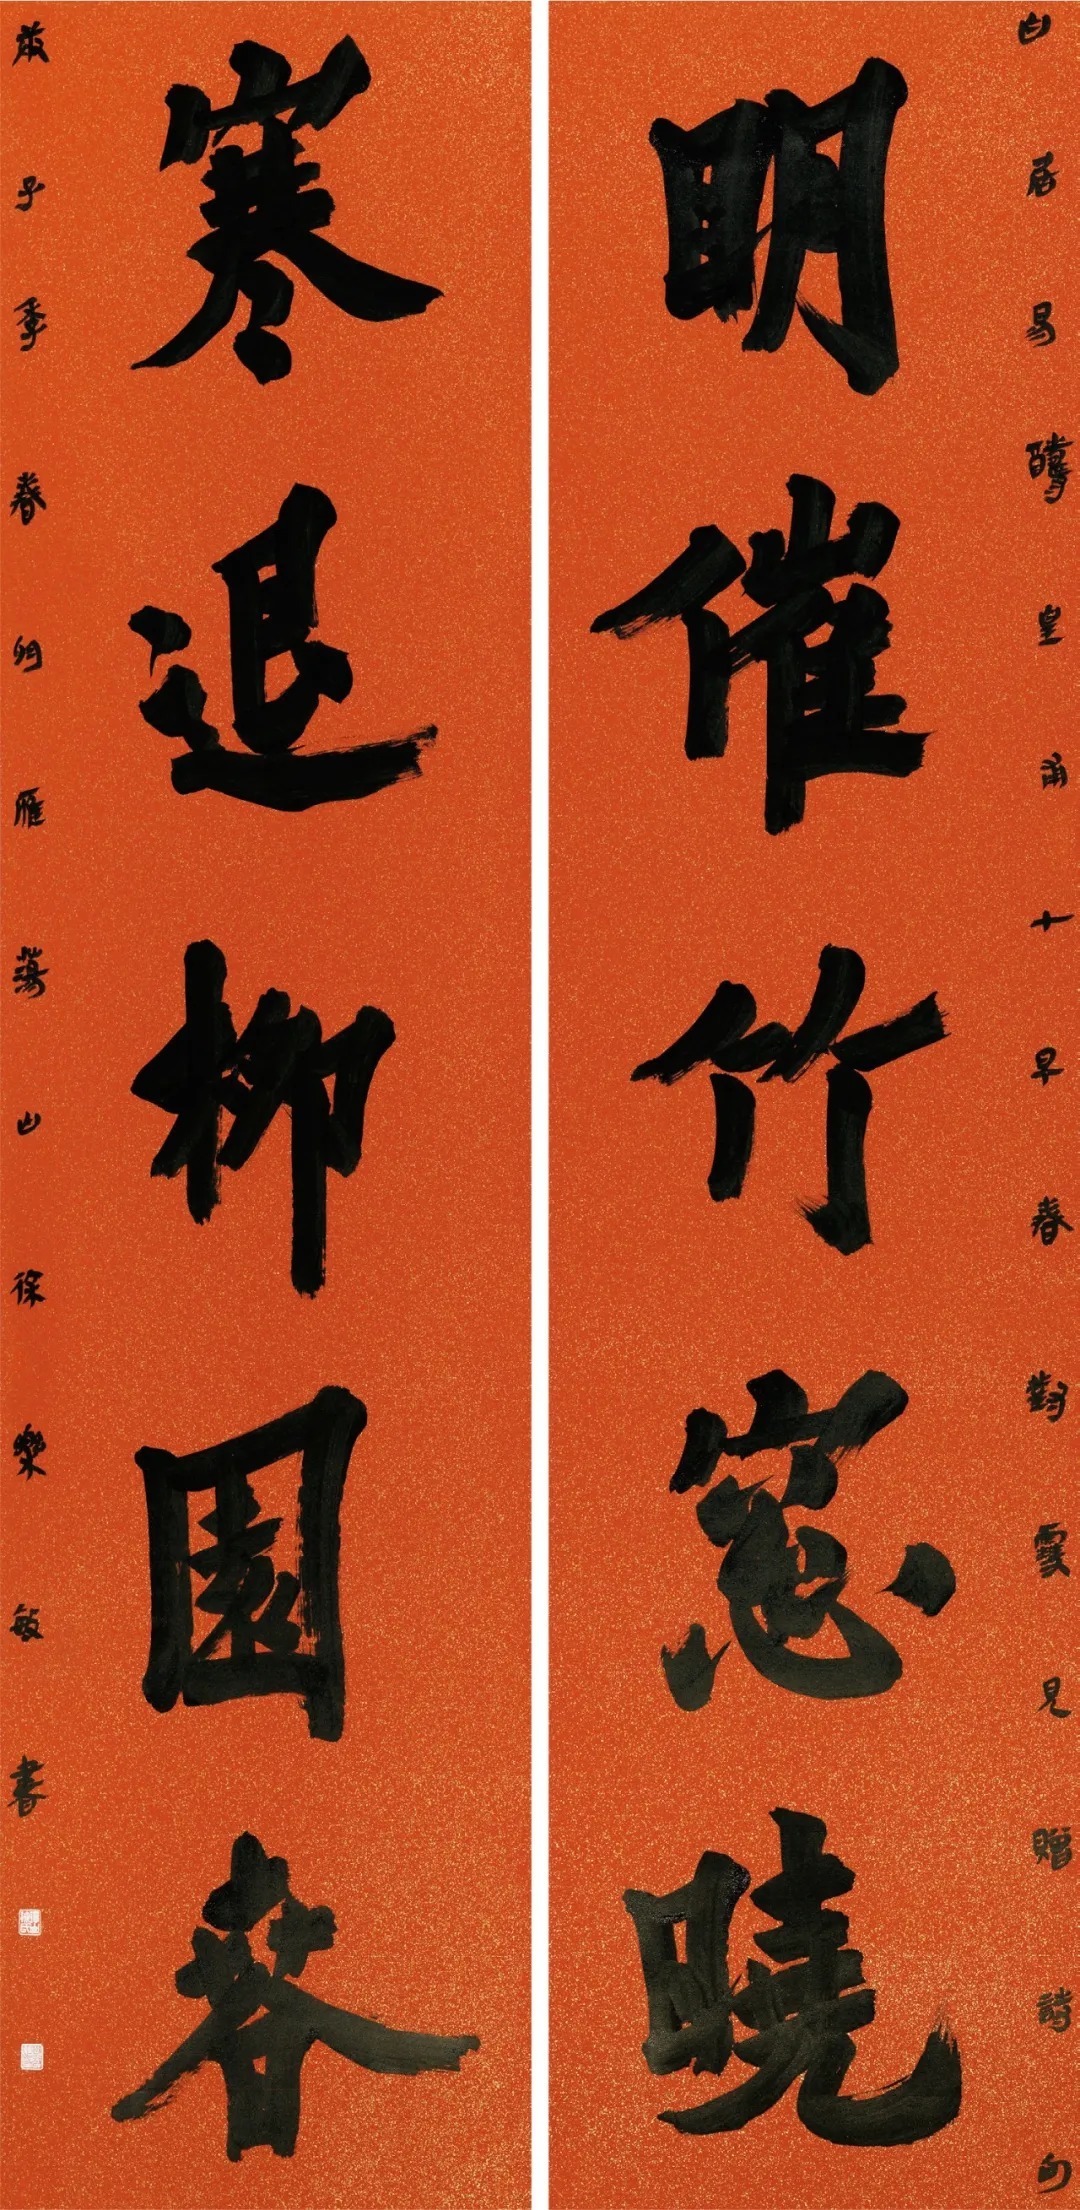 白居易醻皇甫十早春對雪見贈詩句
明催竹窓曉
寒退柳園春
子季春雁蕩山徐樂敏書